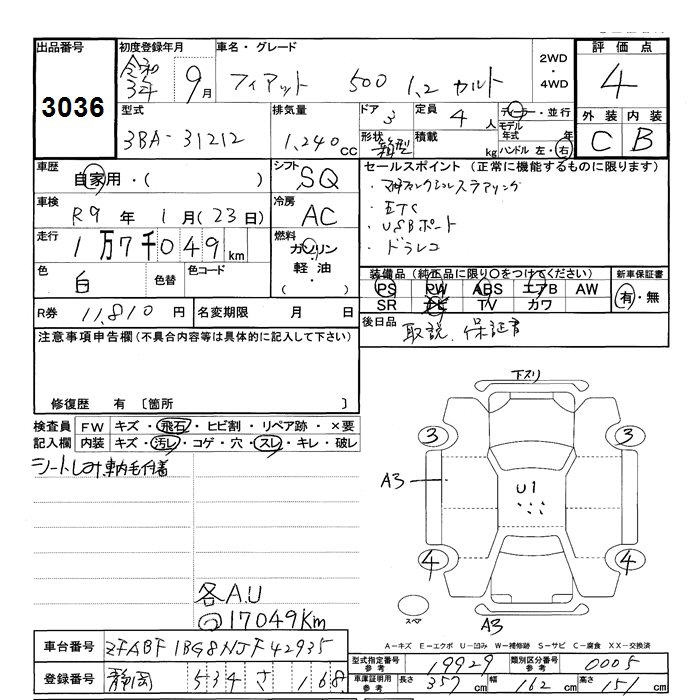 出品番号
3036
初度登録年月
令和3年 9月
車名・グレード
フィアット 500 1.2 カルト
2WD
・
4WD
評価点
4
外装 内装
C B
型式
3BA-31212
排気量
1,240cc
ドア
3
形状
箱型
定員
4人
積載
kg
ディーラー・並行
モデル年式 年
ハンドル 左・右
車歴
自家用・( )
シフト
SQ
車検
R9年 1月(23日)
冷房
AC
走行
1万7千049km
燃料
ガソリン
軽油・
( )
色
白
色替
色コード
R券
11,810円
名変期限 月 日
セールスポイント(正常に機能するものに限ります)
・マルチファンクションステアリング
・ETC
・USBポート
・ドラレコ
装備品(純正品に限り○をつけてください)
PS PW ABS エアB AW
SR ナビ TV カワ
新車保証書
有・無
後日品
取説、保証書
注意事項申告欄(不具合内容等は具体的に記入して下さい)
修復歴 有 〔箇所 〕
検査員記入欄
FW キズ・飛石・ヒビ割・リペア跡・×要
内装 キズ・汚レ・コゲ・穴・スレ・キレ・破レ
シートしみ 車内毛付着
各A.U
@17049Km
下スリ
3 3
A3
U1
4 4
スペア
A3
A-キズ E-エクボ U-凹み W-補修跡 S-サビ C-腐食 XX-交換済
車台番号 ZFABF1BG8NJF42935
登録番号 静岡 534 さ 168
型式指定番号 参考 19929
類別区分番号 参考 0005
車庫証明用 参考 長さ 357cm 幅 162cm 高さ 151cm